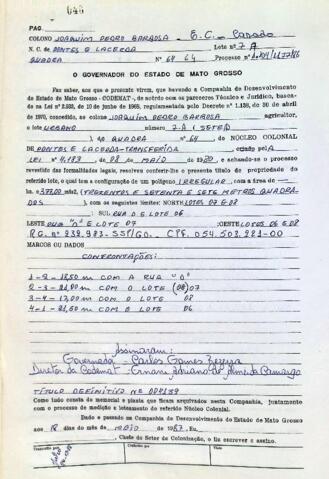 046
PAG.
COLONO JOAQUIM PEDRO BARBOSA E.C. Casado
N. C. de PONTES E LACERDA Lote nº 7 A
QUADRA Nº 64 64 Processo nº
O GOVERNADOR DO ESTADO DE MATO GROSSO
Faz saber, aos que o presente virem, que havendo a Companhia de Desenvolvimento
do Estado de Mato Grosso - CODEMAT-, de acordo com os pareceres Técnico e Jurídico, basea-
da na Lei de 10 de junho de regulamentada pelo Decreto nº 1.138, de 30 de abril
de 1970, concedido, ao colono JOAQUIM PEDRO BARBOSA agricultor,
o lote URBANO número 7 A (SETE
), da QUADRA nº 64, DO NÚCLEO COLONIAL
de PONTES E LACERDA-TRANSFERIDA criado pela
LEI nº 4.193, de 08 de MAIO de 1980, e achando-se o processo
revestido das formalidades legais, resolveu conferir-lhe o presente título de propriedade do
referido lote, o qual tem a configuração de um polígono IRREGULAR, com a área de
377,00 m2, (TREZENTOS E SETENTA E SETE METROS QUADRA-
DOS), com os seguintes limites: NORTE LOTES 07 E 08
SUL RUA D E LOTE 06
LESTE RUA "D" E LOTE 07 OESTE LOTES 06 E 08
RG. nº 232.983-SSP/GO. CPF. 054.503.281-00
MARCOS OU DADOS
CONFRONTAÇÕES:
1-2 - 18,50 m COM A RUA "D"
2-3 - 21,00 m COM O LOTE (08) 07
3-4 - 17,00 m COM O LOTE 08
4-1 - 21,50 m COM O LOTE 06
Assinaram:
Governador - Carlos Gomes Bezerra
Diretor da Codemat - Ernani Adriano de Almeida Camargo
TÍTULO DEFINITIVO Nº 004139
Como tudo consta do memorial e planta que ficam arquivados nesta Companhia, juntamente
com o processo de medição e loteamento do referido Núcleo Colonial.
Dado e passado na Companhia de Desenvolvimento do Estado de Mato Grosso
aos 18 dias do mês de MAIO de 1987. Eu,
, Chefe do Setor de Colonização, o fiz escrever e assino.
Transcrito por
Conferido por